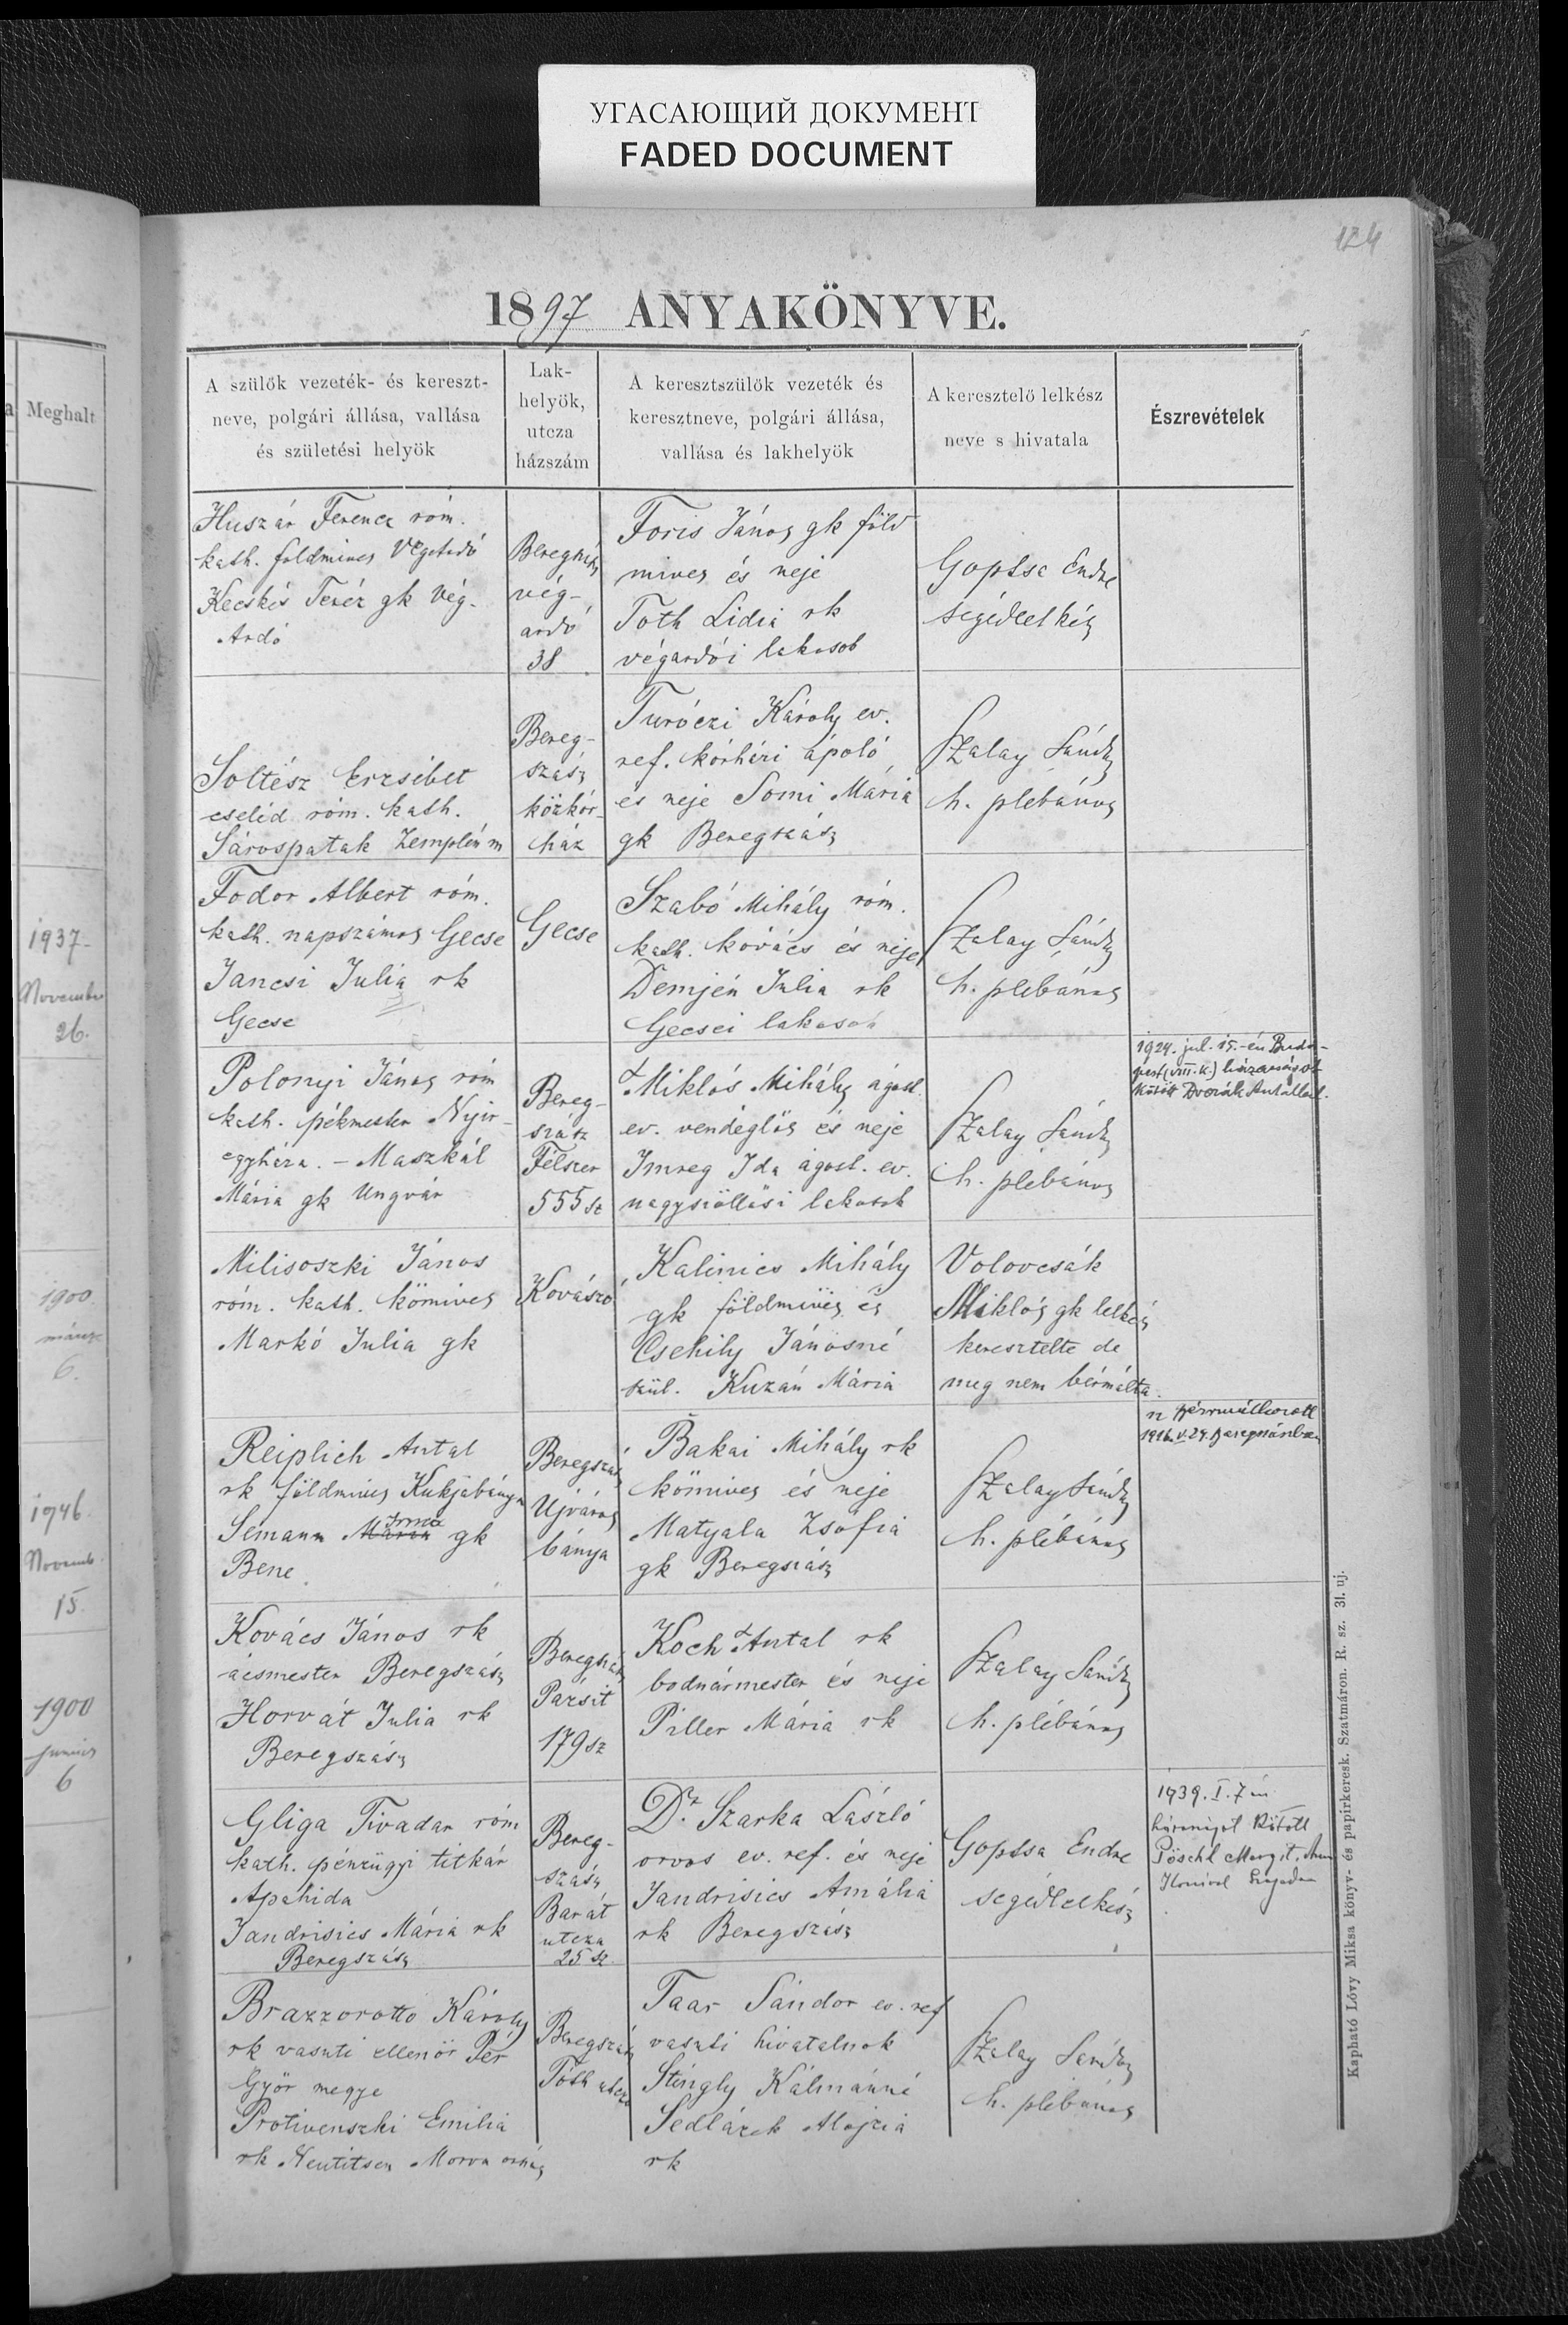 УГАСАЮЩИЙ ДОКУМЕНТ
FADED DOCUMENT
124
1897 ANYAKÖNYVE.
Meghalt
1937-
November
26.
1900
márcz
6.
1946.
Novemb.
15.
1900
junius
6
A szülők vezeték- és kereszt-
neve, polgári állása, vallása
és születési helyök
Lak-
helyök,
utcza
házszám
A keresztszülők vezeték és
keresztneve, polgári állása,
vallása és lakhelyök
A keresztelő lelkész
neve s hivatala
Észrevételek
Huszár Ferencz róm.
kath. földmives Végardó
Kecskés Teréz gk Vég-
Ardó
Beregszász
vég-
ardó
38
Foris János gk föld
mives és neje
Toth Lidia rk
végardói lakosok
Gopsa Endre
segédlelkész
Soltész Erzsébet
cseléd róm. kath.
Sárospatak Zemplén m
Bereg-
szász
közkór-
ház
Turóczi Károly ev.
ref. kórházi ápoló
és neje Somi Mária
gk Beregszász
Szalay Sándor
h. plébános
Fodor Albert róm.
kath. napszámos Gecse
Jancsi Julia rk
Gecse
Gecse
Szabó Mihály róm.
kath. kovács és neje
Demjén Julia rk
Gecsei lakosok
Szalay Sándor
h. plébános
Polonyi János róm
kath. pékmester Nyir-
egyháza. - Maszkál
Mária gk Ungvár
Bereg-
szász
Félszer
555 sz
Miklós Mihály ágost.
ev. vendéglős és neje
Imreg Ida ágost. ev.
nagyszöllősi lakosok
Szalay Sándor
h. plébános
1924. jul. 15.-én Buda-
pest (VIII. k.) házasságot
kötött Dvorák Antallal.
Milisoszki János
róm. kath. kőmives
Markó Julia gk
Kovászó
Kalinics Mihály
gk földmives és
Csehily Jánosné
szül. Kuzán Mária
Volovcsák
Miklós gk lelkész
keresztelte de
meg nem bérmálta.
Reiplich Antal
rk földmives Kukjabánya
Semann Mária Irma gk
Bene
Beregszász
Ujváros
bánya
Bakai Mihály rk
kőmives és neje
Matyala Zsófia
gk Beregszász
Szalay Sándor
h. plébános
bérmálkozott
1916. V. 24. Beregszászban
Kovács János rk
ácsmester Beregszász
Horvát Julia rk
Beregszász
Beregszász
Pázsit
179 sz
Koch Antal rk
bodnármester és neje
Piller Mária rk
Szalay Sándor
h. plébános
Gliga Tivadar róm
kath. pénzügyi titkár
Apahida
Jandrisics Mária rk
Beregszász
Bereg-
szász
Barát
utcza
25 sz.
Dr. Szarka László
orvos ev. ref. és neje
Jandrisics Amália
rk Beregszász
Gopsa Endre
segédlelkész
1939. I. 7 én
házasságot kötött
Pöschl Margit
Ilonával Szegeden
Brazzorotto Károly
rk vasuti ellenőr Pér
Győr megye
Protivenszki Emilia
rk Neutitsen Morva orszg
Beregszász
Tóth utcza
Taar Sándor ev. ref
vasuti hivatalnok
Stingly Kálmánné
Sedlázek Alojzia
rk
Szalay Sándor
h. plébános
Kapható Lővy Miksa könyv- és papirkeresk. Szatmáron. R. sz. 31. uj.